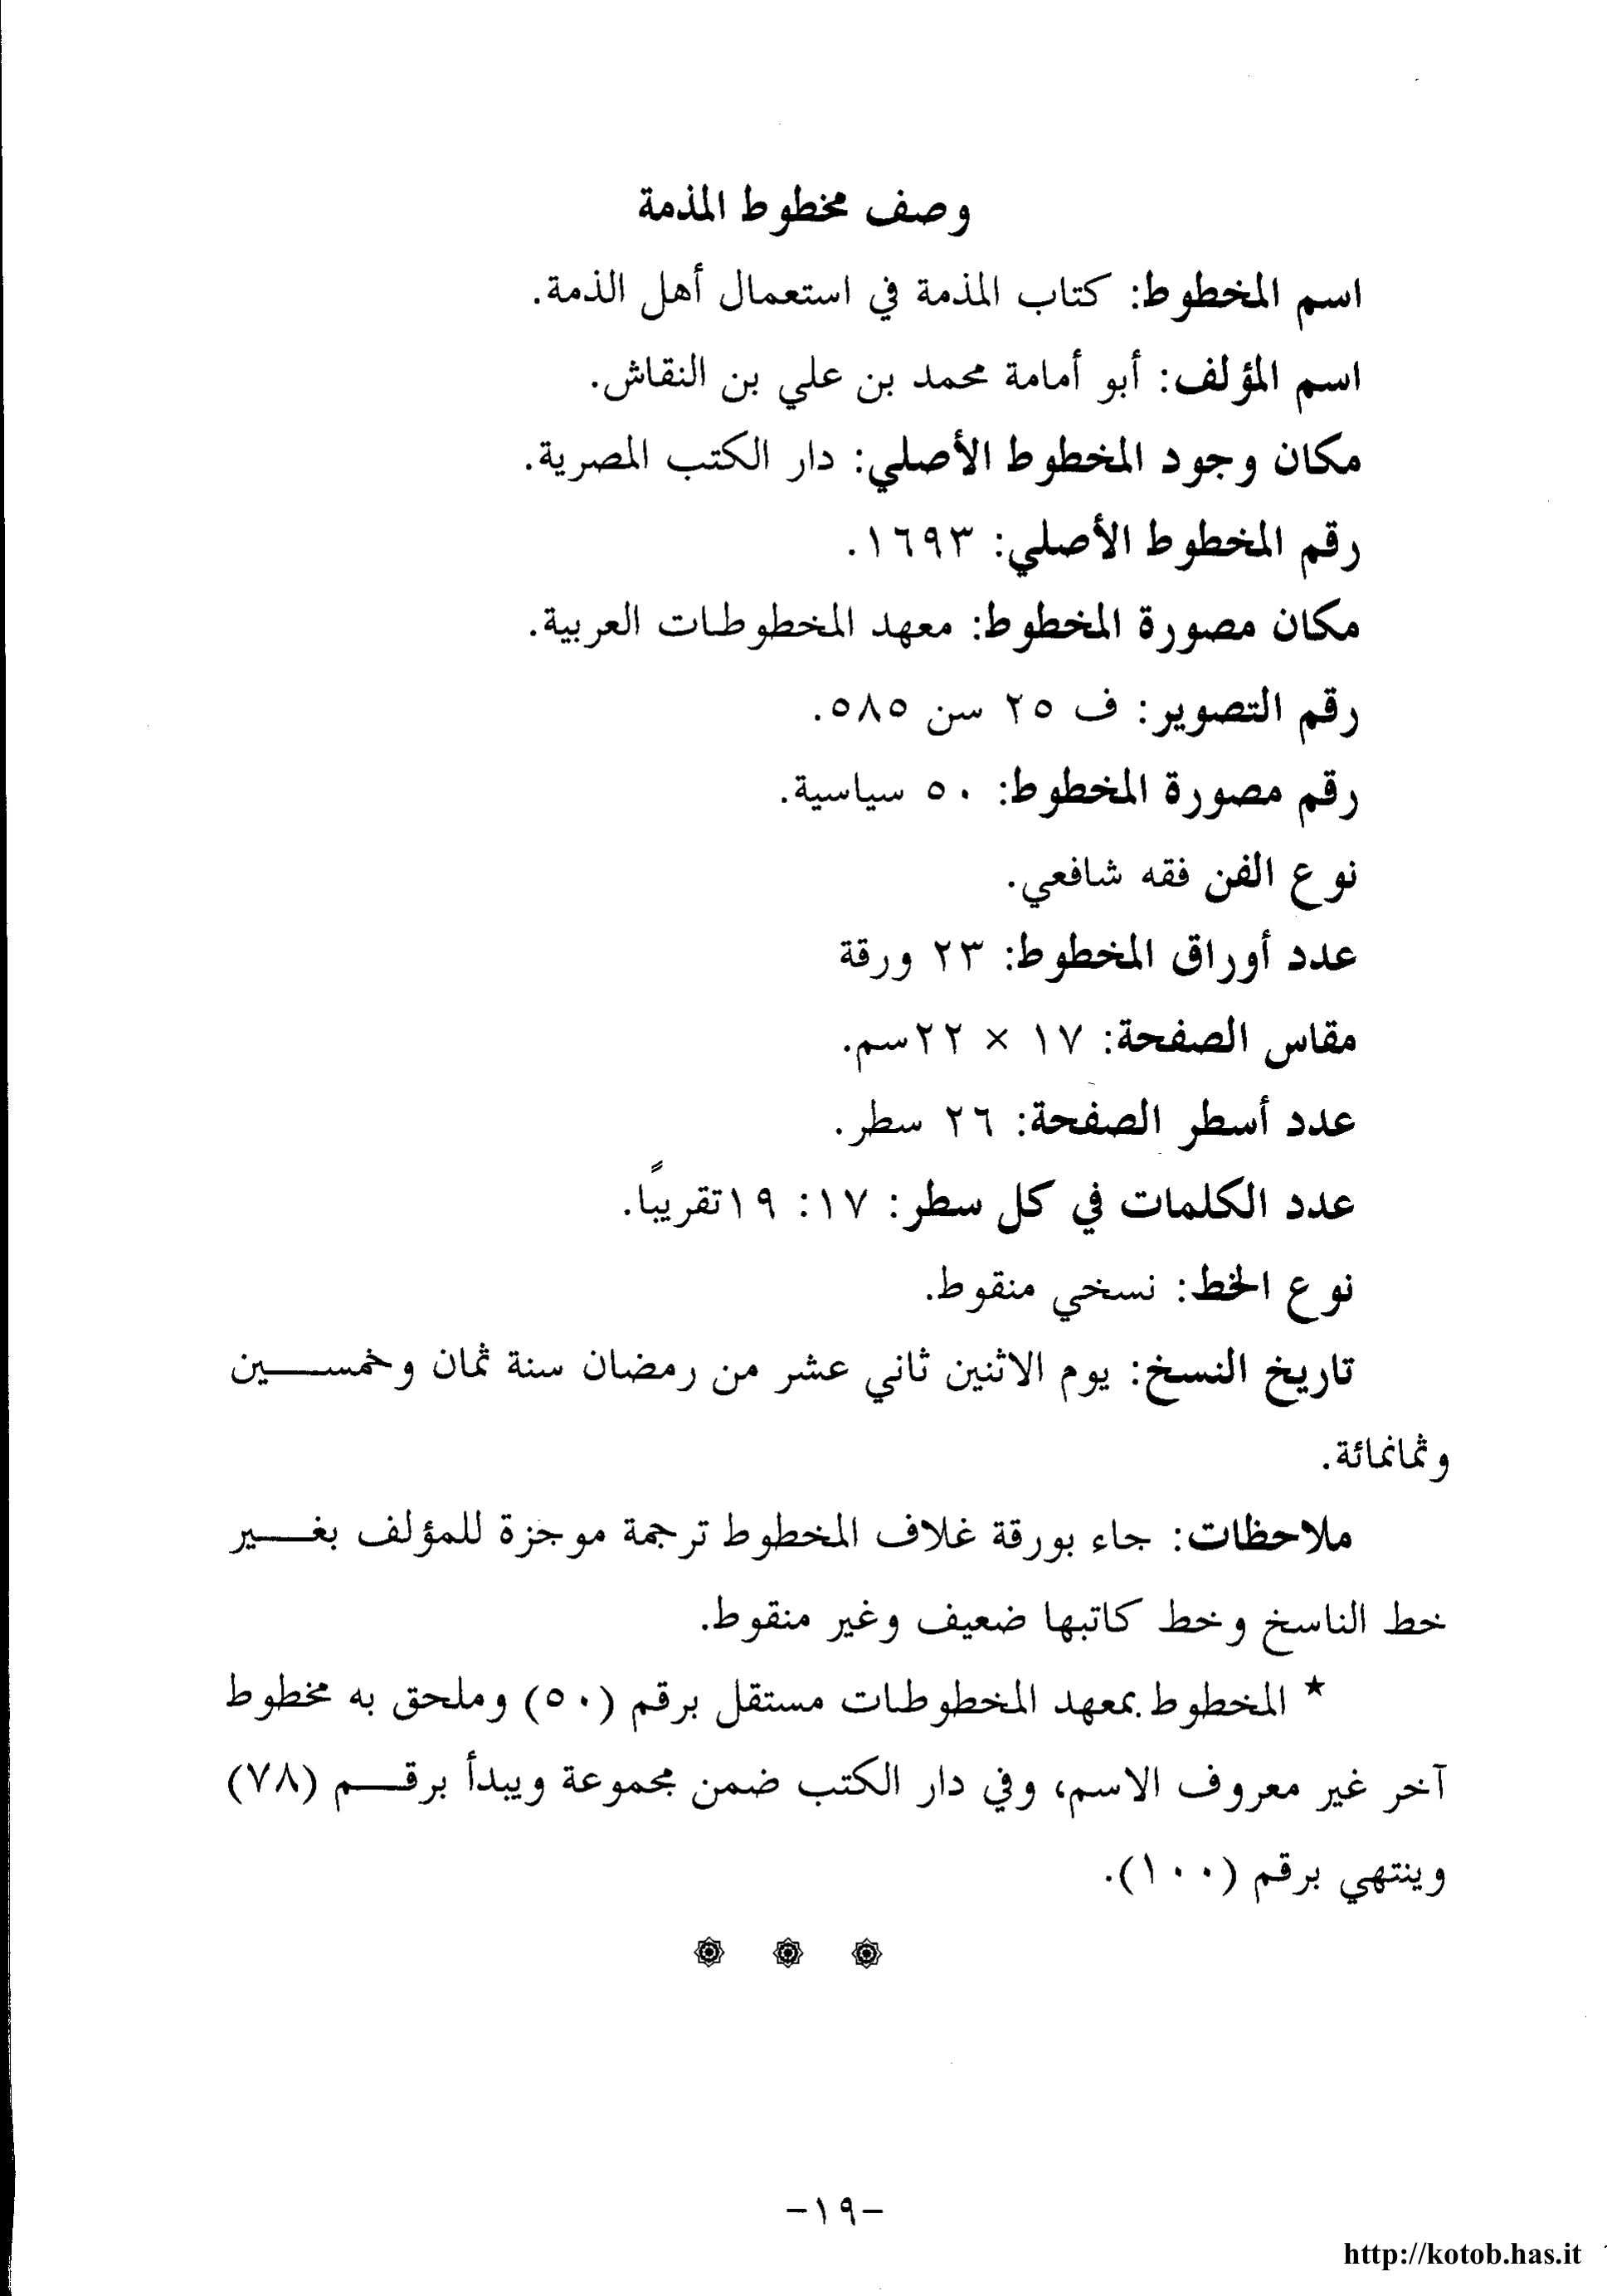 وصف مخطوط المذمة
اسم المخطوط: كتاب المذمة في استعمال أهل الذمة.
اسم المؤلف: أبو أمامة محمد بن علي بن النقاش.
مكان وجود المخطوط الأصلي: دار الكتب المصرية.
رقم المخطوط الأصلي: ١٦٩٣.
مكان مصورة المخطوط: معهد المخطوطات العربية.
رقم التصوير: ف ٢٥ سن ٥٨٥.
رقم مصورة المخطوط: ٥٠ سياسية.
نوع الفن فقه شافعي.
عدد أوراق المخطوط: ٢٣ ورقة
مقاس الصفحة: ١٧ × ٢٢سم.
عدد أسطر الصفحة: ٢٦ سطر.
عدد الكلمات في كل سطر: ١٧: ١٩تقريبًا.
نوع الخط: نسخي منقوط.
تاريخ النسخ: يوم الاثنين ثاني عشر من رمضان سنة ثمان وخمسين
وثمانمائة.
ملاحظات: جاء بورقة غلاف المخطوط ترجمة موجزة للمؤلف بغير
خط الناسخ وخط كاتبها ضعيف وغير منقوط.
* المخطوط بمعهد المخطوطات مستقل برقم (٥٠) وملحق به مخطوط
آخر غير معروف الاسم، وفي دار الكتب ضمن مجموعة ويبدأ برقم (٧٨)
وينتهي برقم (١٠٠).
-١٩-
http://kotob.has.it